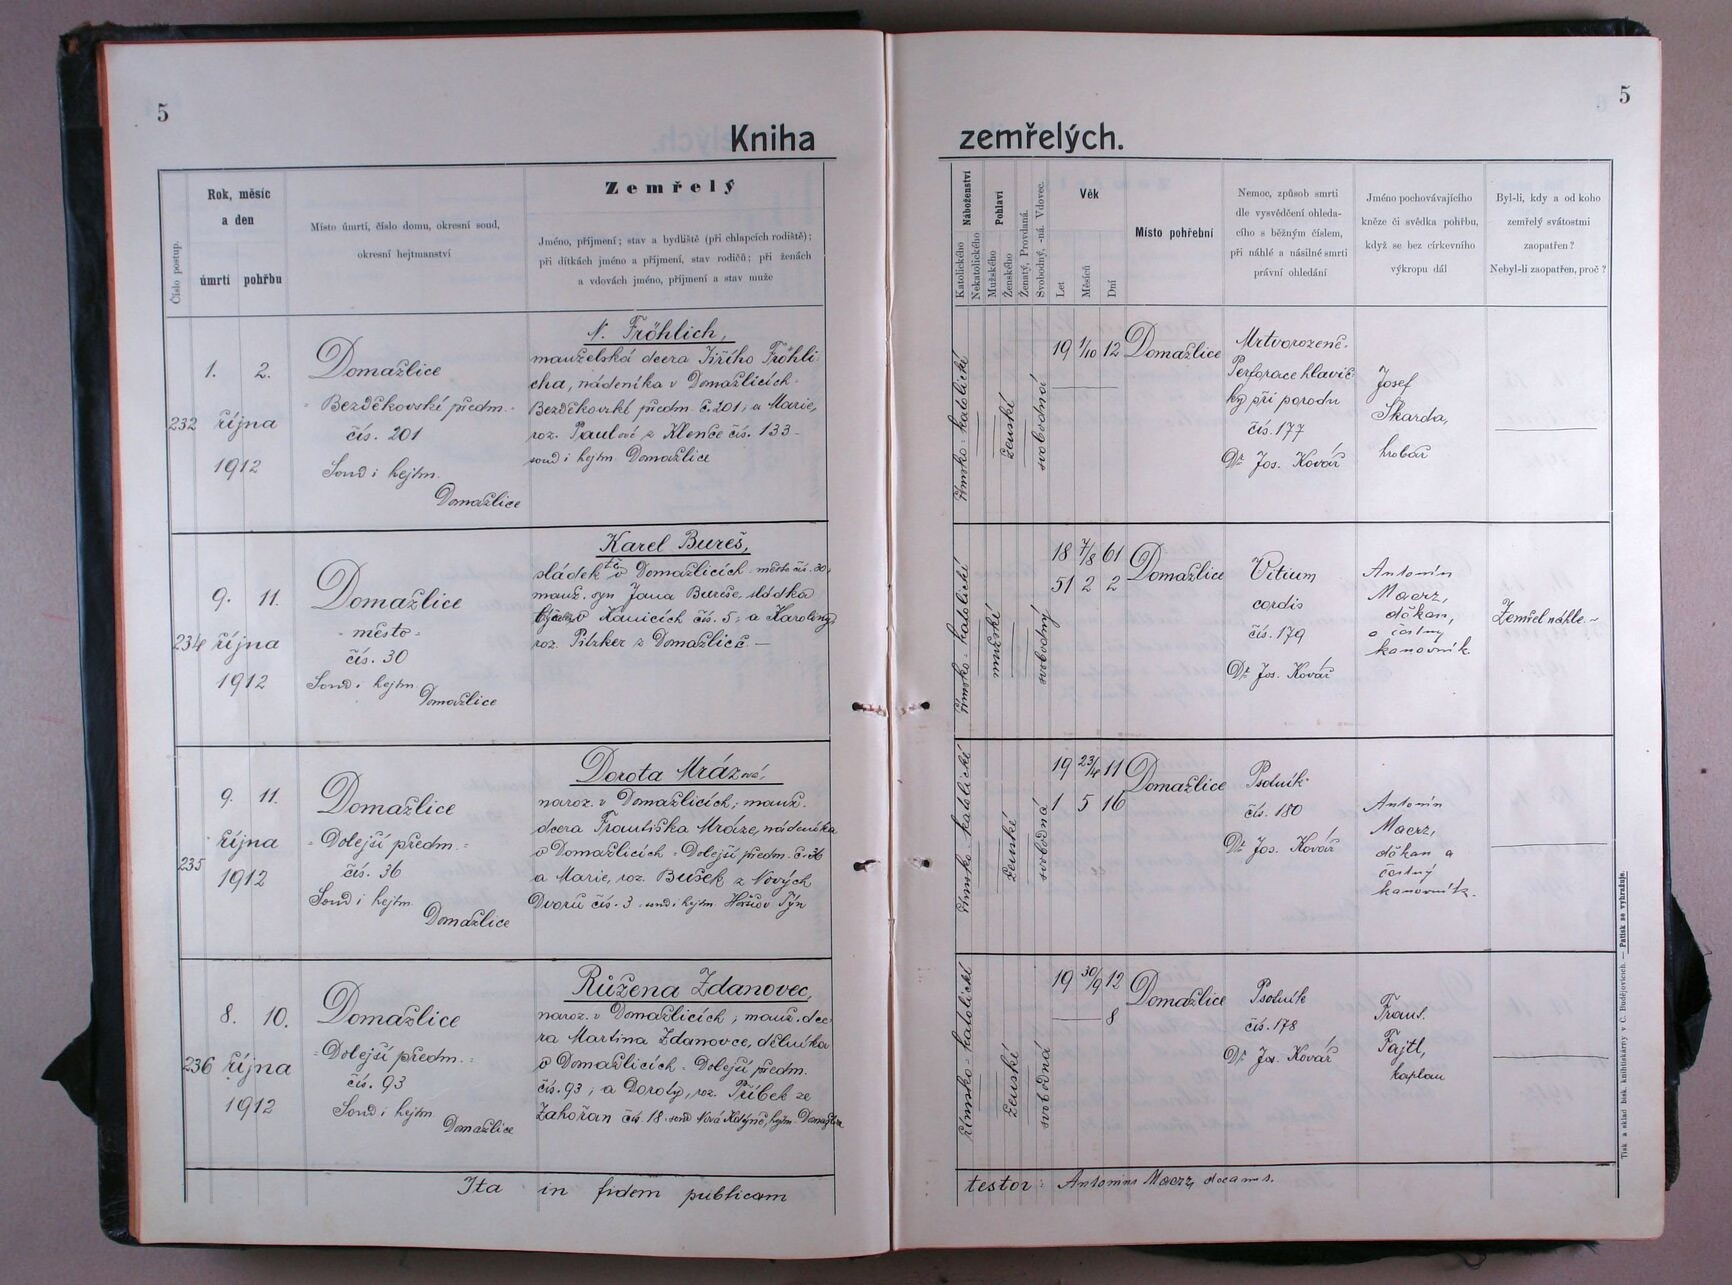 5
Kniha
zemřelých.
5
Číslo postup.
Rok, měsíc
a den
úmrtí pohřbu
Místo úmrtí, číslo domu, okresní soud,
okresní hejtmanství
Zemřelý
Jméno, příjmení; stav a bydliště (při chlapcích rodiště);
při dítkách jméno a příjmení, stav rodičů; při ženách
a vdovách jméno, příjmení a stav muže
Náboženství
Katolického
Nekatolického
Pohlaví
Mužského
Ženského
Ženatý, Provdaná.
Svobodný, -ná. Vdovec.
Věk
Let
Měsíců
Dní
Místo pohřební
Nemoc, způsob smrti
dle vysvědčení ohleda-
cího s běžným číslem,
při náhlé a násilné smrti
právní ohledání
Jméno pochovávajícího
kněze či svědka pohřbu,
když se bez církevního
výkropu dál
Byl-li, kdy a od koho
zemřelý svátostmi
zaopatřen?
Nebyl-li zaopatřen, proč?
232
1. 2.
října
1912
Domažlice
Bezděkovské předm.
čís. 201
Soud i hejtm.
Domažlice
N. Fröhlich,
manželská dcera Jiřího Fröhli-
cha, nádeníka v Domažlicích-
Bezděkovské předm. č. 201, a Marie,
roz. Paulové z Klenče čís. 133-
soud i hejtm. Domažlice
římsko-katolické
ženské
svobodná
19 1/10 12
Domažlice
Mrtvorozeně.
Perforace hlavič-
ky při porodu
čís. 177
Dr. Jos. Kovář
Josef
Skarda,
hrobař
234
9. 11.
října
1912
Domažlice
- město -
čís. 30
Soud i hejtm.
Domažlice
Karel Bureš,
sládek v Domažlicích - město čís. 30,
manž. syn Jana Bureše, sládka
Kanicích čís. 5, a Karoliny,
roz. Pilzker z Domažlic. -
římsko-katolické
mužské
svobodný
18 7/8 61
51 2 2
Domažlice
Vitium
cordis
čís. 179
Dr. Jos. Kovář
Antonín
Maerz,
děkan,
a čestný
kanovník.
Zemřel náhle. -
235
9. 11.
října
1912
Domažlice
- Dolejší předm. -
čís. 36
Soud i hejtm.
Domažlice
Dorota Mrázová,
naroz. v Domažlicích; manž.
dcera Františka Mráze, nádeníka
v Domažlicích - Dolejší předm. č. 36
a Marie, roz. Bušek z Nových
Dvorů čís. 3 - soud i hejtm. Horšův Týn
římsko-katolické
ženské
svobodná
19 23/4 11
1 5 16
Domažlice
Psotník
čís. 180
Dr. Jos. Kovář
Antonín
Maerz,
děkan a
čestný
kanovník.
236
8. 10.
října
1912
Domažlice
- Dolejší předm. -
čís. 93
Soud i hejtm.
Domažlice
Růžena Zdanovec,
naroz. v Domažlicích; manž. dce-
ra Martina Zdanovce, dělníka
v Domažlicích - Dolejší předm.
čís. 93, a Doroty, roz. Příbek ze
Zahořan čís. 18 - soud Nová Kdyně, hejtm. Domažlice
římsko-katolické
ženské
svobodná
19 30/9 12
8
Domažlice
Psotník
čís. 178
Dr. Jos. Kovář
Frant.
Fajtl,
kaplan
Ita in fidem publicam
testor: Antonius Maerz, decanus.
Tisk a sklad bisk. knihtiskárny v Č. Budějovicích. — Patisk se vyhražuje.